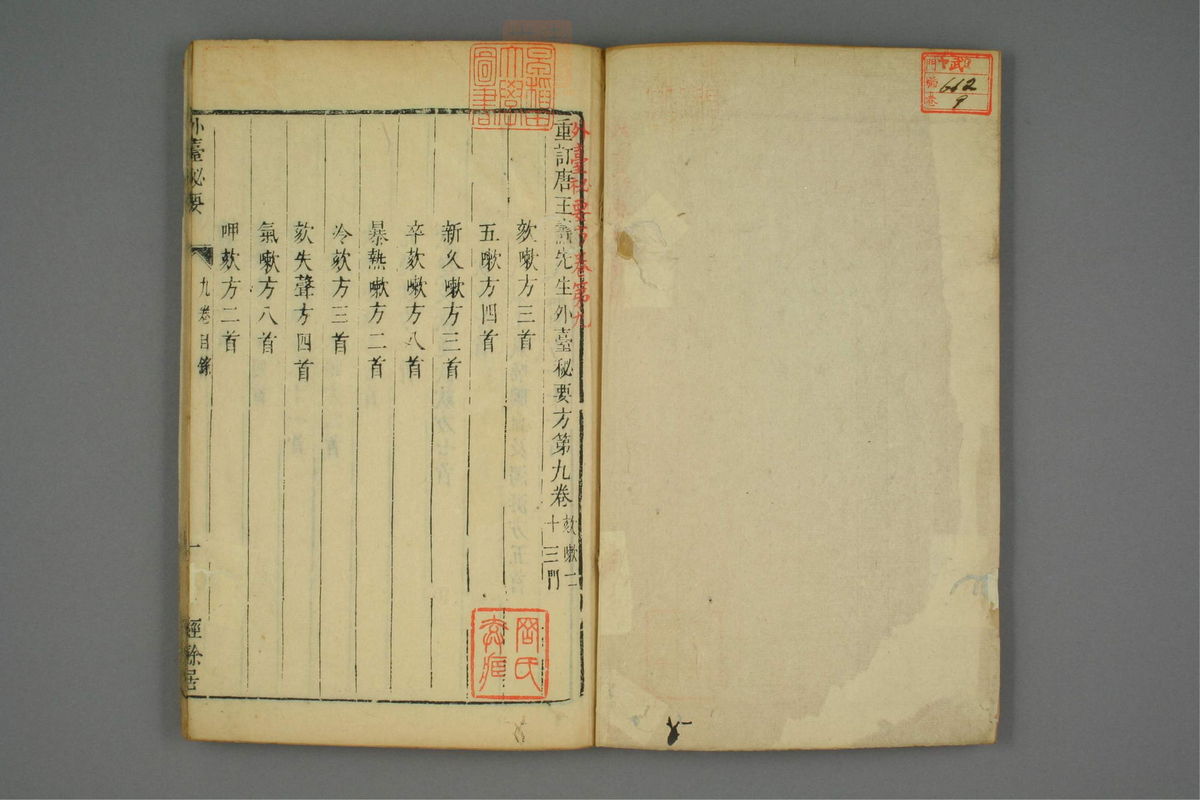 門
662
9
外臺秘要方卷第九
重訂唐王燾先生外臺秘要方第九卷 欬嗽二十三門
欬嗽方三首
五嗽方四首
新久嗽方三首
卒欬嗽方八首
暴熱嗽方二首
冷欬方三首
欬失聲方四首
氣嗽方八首
呷欬方二首
外臺秘要
九卷目錄
一
經餘居
圖書
大學